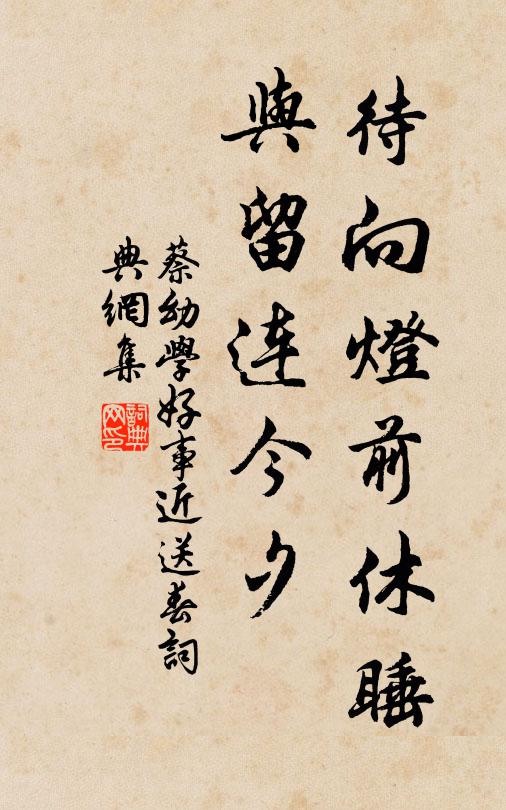 待向燈前休睡
與留連今夕
蔡幼學好事近送春詞
典網集
詞典网印